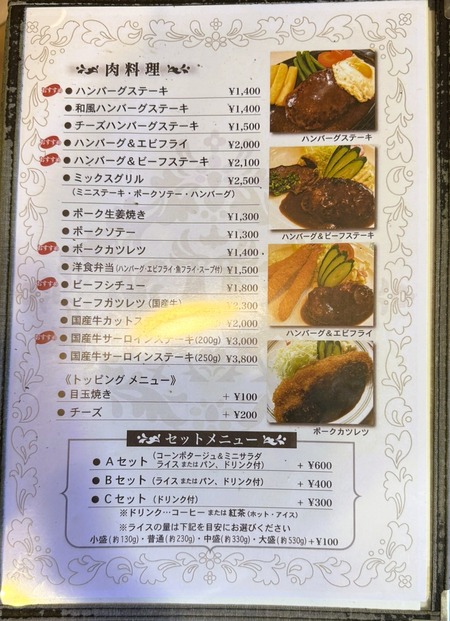 肉料理
おすすめ ● ハンバーグステーキ ¥1,400
● 和風ハンバーグステーキ ¥1,400
● チーズハンバーグステーキ ¥1,500
おすすめ ● ハンバーグ＆エビフライ ¥2,000
おすすめ ● ハンバーグ＆ビーフステーキ ¥2,100
● ミックスグリル ¥2,500
（ミニステーキ・ポークソテー・ハンバーグ）
● ポーク生姜焼き ¥1,300
● ポークソテー ¥1,300
おすすめ ● ポークカツレツ ¥1,400
● 洋食弁当（ハンバーグ・エビフライ・魚フライ・スープ付） ¥1,500
おすすめ ● ビーフシチュー ¥1,800
● ビーフカツレツ（国産牛） ¥2,300
● 国産牛カット ¥2,000
おすすめ ● 国産牛サーロインステーキ（200g） ¥3,000
● 国産牛サーロインステーキ（250g） ¥3,800
《トッピング メニュー》
● 目玉焼き + ¥100
● チーズ + ¥200
ハンバーグステーキ
ハンバーグ＆ビーフステーキ
ハンバーグ＆エビフライ
ポークカツレツ
セットメニュー
● Aセット（コーンポタージュ＆ミニサラダ
ライス または パン、ドリンク付） + ¥600
● Bセット（ライス または パン、ドリンク付） + ¥400
● Cセット（ドリンク付） + ¥300
※ドリンク…コーヒー または 紅茶（ホット・アイス）
※ライスの量は下記を目安にお選びください
小盛（約130g）・普通（約230g）・中盛（約330g）・大盛（約530g）+¥100